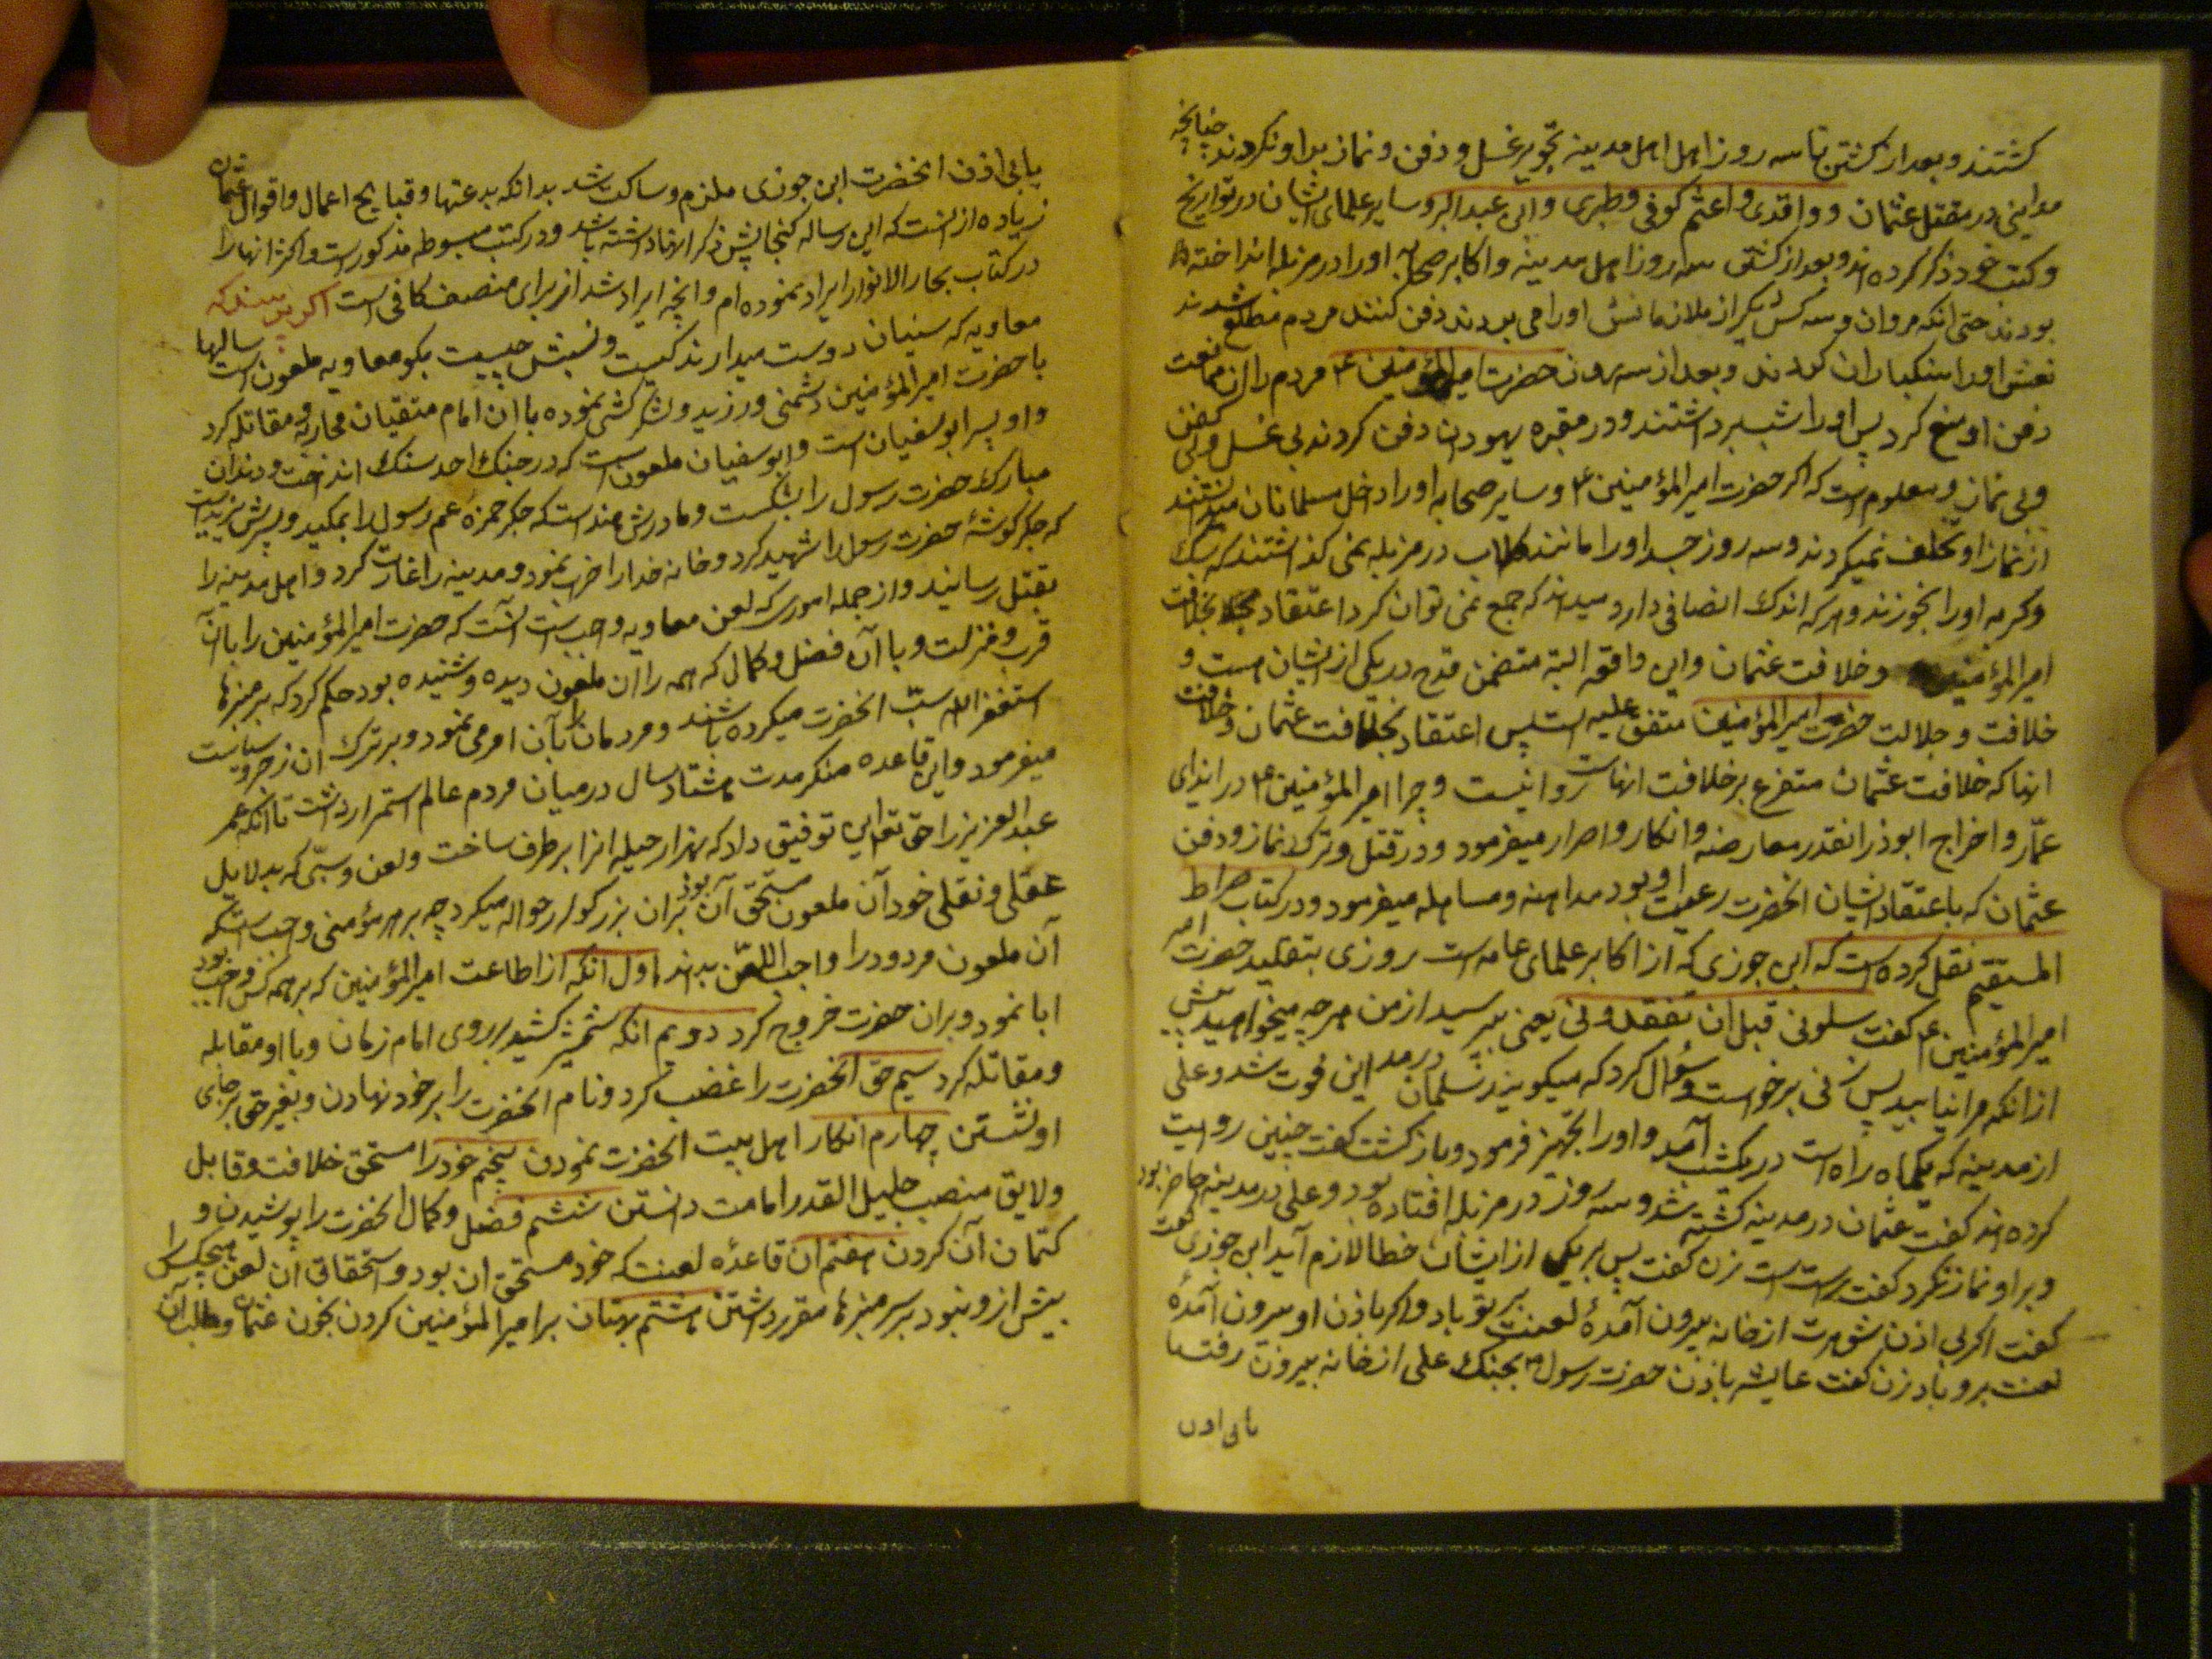 کشتند و بعد از کشتن تا سه روز اهل اهل مدینه تجویز غسل و دفن و نماز بر او نکردند چنانچه
مداینی در مقتل عثمان و واقدی و اعثم کوفی و طبری و ابن عبدالبر و سایر علمای ایشان در تواریخ
و کتب خود ذکر کرده اند و بعد از کشتن سه روز اهل مدینه و اکابر صحابه او را در مزبله انداخته
بودند حتی انکه مروان و سه کس دیکر از ملازمانش او را می بردند دفن کنند مردم مطلع شدند
نعش او را سنکباران کردند و بعد از سه روز حضرت امیرالمؤمنین ع مردم را از ممانعت
دفن او منع کرد پس او را شب برداشتند و در مقبره یهودان دفن کردند بی غسل و بی کفن
و بی نماز و معلوم است که اکر حضرت امیر المؤمنین ع و سایر صحابه او را داخل مسلمانان میدانستند
از نماز او تخلف نمیکردند و سه روز جسد او را مانند کلاب در مزبله نمی کذاشتند که سک
و کربه او را بخورند و هر که اندک انصافی دارد میداند که جمع نمی توان کرد اعتقاد بخلافت
امیر المؤمنین و خلافت عثمان و این واقعه البته متضمن قدح در یکی از ایشان هست و
خلافت و جلالت حضرت امیر المؤمنین متفق علیه است پس اعتقاد بخلافت عثمان و خلافت
انها که خلافت عثمان متفرع بر خلافت انهاست روا نیست و چرا امیر المؤمنین ع در ایذای
عمّار و اخراج ابوذر انقدر معارضه و انکار و اصرار میفرمود و در قتل و ترک نماز و دفن
عثمان که باعتقاد ایشان انحضرت رعیت او بود مداهنه و مساهله میفرمود و در کتاب صراط
المستقیم نقل کرده است که ابن جوزی که از اکابر علمای عامه است روزی بتقلید حضرت امیر
امیر المؤمنین ع کفت سلونی قبل ان تفقدونی یعنی بپرسید از من هر چه میخواهید پیش
از انکه مرا نیابید پس زنی برخواست و سؤال کرد که میکویند سلمان در مداین فوت شد و علی
از مدینه که یکماه راه است در یکشب آمد و او را تجهیز فرمود و باز کشت کفت چنین روایت
کرده اند کفت عثمان در مدینه کشته شد و سه روز در مزبله افتاده بود و علی در مدینه حاضر بود
و بر او نماز نکرد کفت راست است زن کفت پس بر یکی از ایشان خطا لازم آید ابن جوزی کفت
کفت اکر بی اذن شوهرت از خانه بیرون آمدۀ لعنت بر تو باد و اکر باذن او بیرون آمدۀ
لعنت بر و باد زن کفت عایشه باذن حضرت رسول ص بجنک علی از خانه بیرون رفت یا
یا بی اذن
یا بی اذن انحضرت ابن جوزی ملزم و ساکت شد بدانکه بدعتها و قبایح اعمال و اقوال عثمان
زیاده از انست که این رساله کنجایش ذکر انها داشته باشد و در کتب مبسوطه مذکور است و اکثر انها را
در کتاب بحار الانوار ایراد نموده ام و انچه ایراد شد از برای منصف کافی است اکر پرسند که
معاویه که سنیان دوست میدارند کیست و نسبش چیست بکو معاویه ملعون است سالها
با حضرت امیر المؤمنین دشمنی ورزید و لشکر کشی نموده با ان امام متقیان محاربه و مقاتله کرد
و او پسر ابو سفیان است و ابو سفیان ملعون است که در جنک احد سنک انداخت و دندان
مبارک حضرت رسول را بشکست و مادرش هند است که جکر حمزه عم رسول را بمکید و پسرش یزید است
که جکر کوشۀ حضرت رسول را شهید کرد و خانه خدا را خراب نمود و مدینه را غارت کرد و اهل مدینه را
بقتل رسانید و از جمله اموری که لعن معاویه واجب است آنست که حضرت امیر المؤمنین را با ان
قرب و منزلت و با آن فضل و کمال که همه را ان ملعون دیده و شنیده بود حکم کرد که بر منبرها
استغفر الله سبّ انحضرت میکرده باشند و مردمان را بآن امر می نمود و بر ترک ان زجر و سیاست
میفرمود و این قاعده منکر مدت هشتاد سال در میان مردم عالم استمرار داشت تا انکه عمر
عبدالعزیز را حق تعالی این توفیق داد که بهزار حیله انرا بر طرف ساخت و لعن و سبّی که بدلایل
عقلی و نقلی خود آن ملعون مستحق آن بود بر ان بزرکوار حواله میکرد چه بر هر مؤمنی واجب است که
آن ملعون مردود را واجب اللعن بدند اول انکه از اطاعت امیر المؤمنین که بر همه کس واجب بود
ابا نمود و بر ان حضرت خروج کرد دویم انکه شمشیر کشید بر روی امام زمان و با او مقابله
و مقاتله کرد سیم حق انحضرت را غضب کرد و نام انحضرت را بر خود نهادن و بغیر حق بر جای
او نشستن چهارم انکار اهل بیت انحضرت نمودن پنجم خود را مستحق خلافت و قابل
و لایق منصب جلیل القدر امامت دانستن ششم فضل و کمال انحضرت را پوشیدن و
کتمان آن کردن هفتم ان قاعدۀ لعنت که خود مستحق ان بود و استحقاق ان لعن هیچکس را
بیش از و نبود بر سر منبرها مقرر داشتن هشتم بهتان بر امیر المؤمنین کردن بخون عثمان و طلب آن